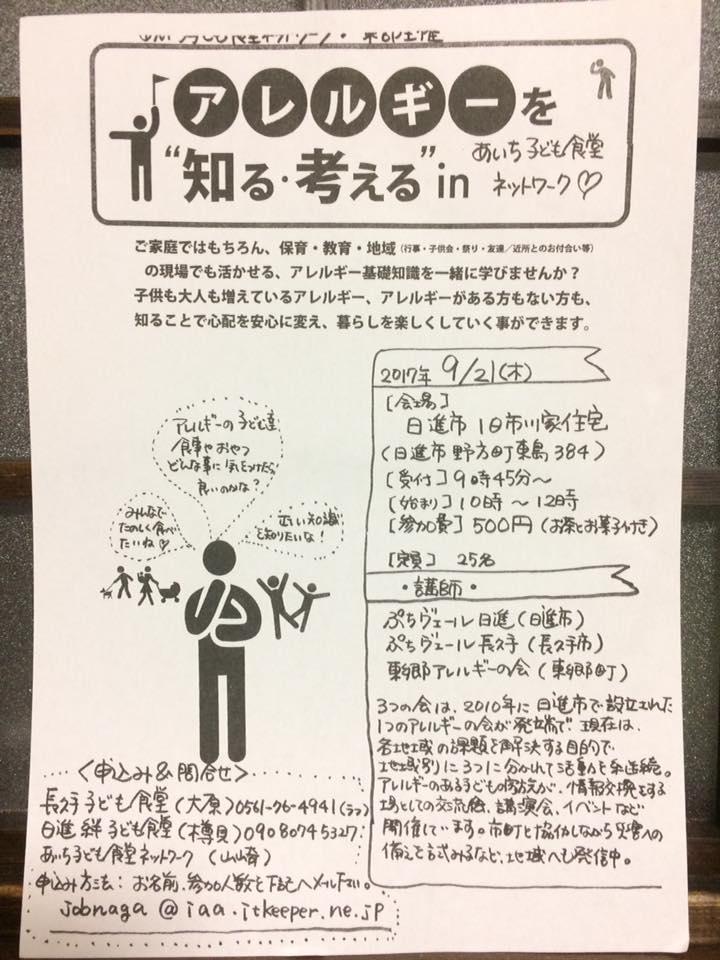 アレルギーを
“知る・考える”in
あいち子ども食堂
ネットワーク♡
ご家庭ではもちろん、保育・教育・地域（行事・子供会・祭り・友達／近所とのお付合い等）
の現場でも活かせる、アレルギー基礎知識を一緒に学びませんか？
子供も大人も増えているアレルギー、アレルギーがある方もない方も、
知ることで心配を安心に変え、暮らしを楽しくしていく事ができます。
アレルギーの子ども達
食事やおやつ
どんな事に気をつけたら
良いのかな？
みんなで
たのしく食べ
たいね♡
正しい知識
を知りたいな！
2017年 9/21(木)
[会場]
日進市 旧市川家住宅
(日進市 野方町東島384)
[受付] 9時45分～
[始まり] 10時～12時
[参加費] 500円(お茶とお菓子付き)
[定員] 25名
・講師・
ぷちヴェール日進(日進市)
ぷちヴェール長久手(長久手市)
東郷アレルギーの会(東郷町)
3つの会は、2010年に日進市で設立された
1つのアレルギーの会が発端で、現在は、
各地域の課題を解決する目的で
地域別に3つに分かれて活動を継続。
アレルギーのある子どもの親が、情報交換をする
場としての交流会、講演会、イベントなど
開催しています。市町と協働しながら災害への
備えを試みるなど、地域へも発信中。
＜申込み＆問合せ＞
長久手子ども食堂(大原)0561-76-4941
日進絆子ども食堂(樽貝)09080745327
あいち子ども食堂ネットワーク (山崎)
申込み方法：お名前、参加人数を下記へメール下さい。
jobnaga@iaa.itkeeper.ne.jp